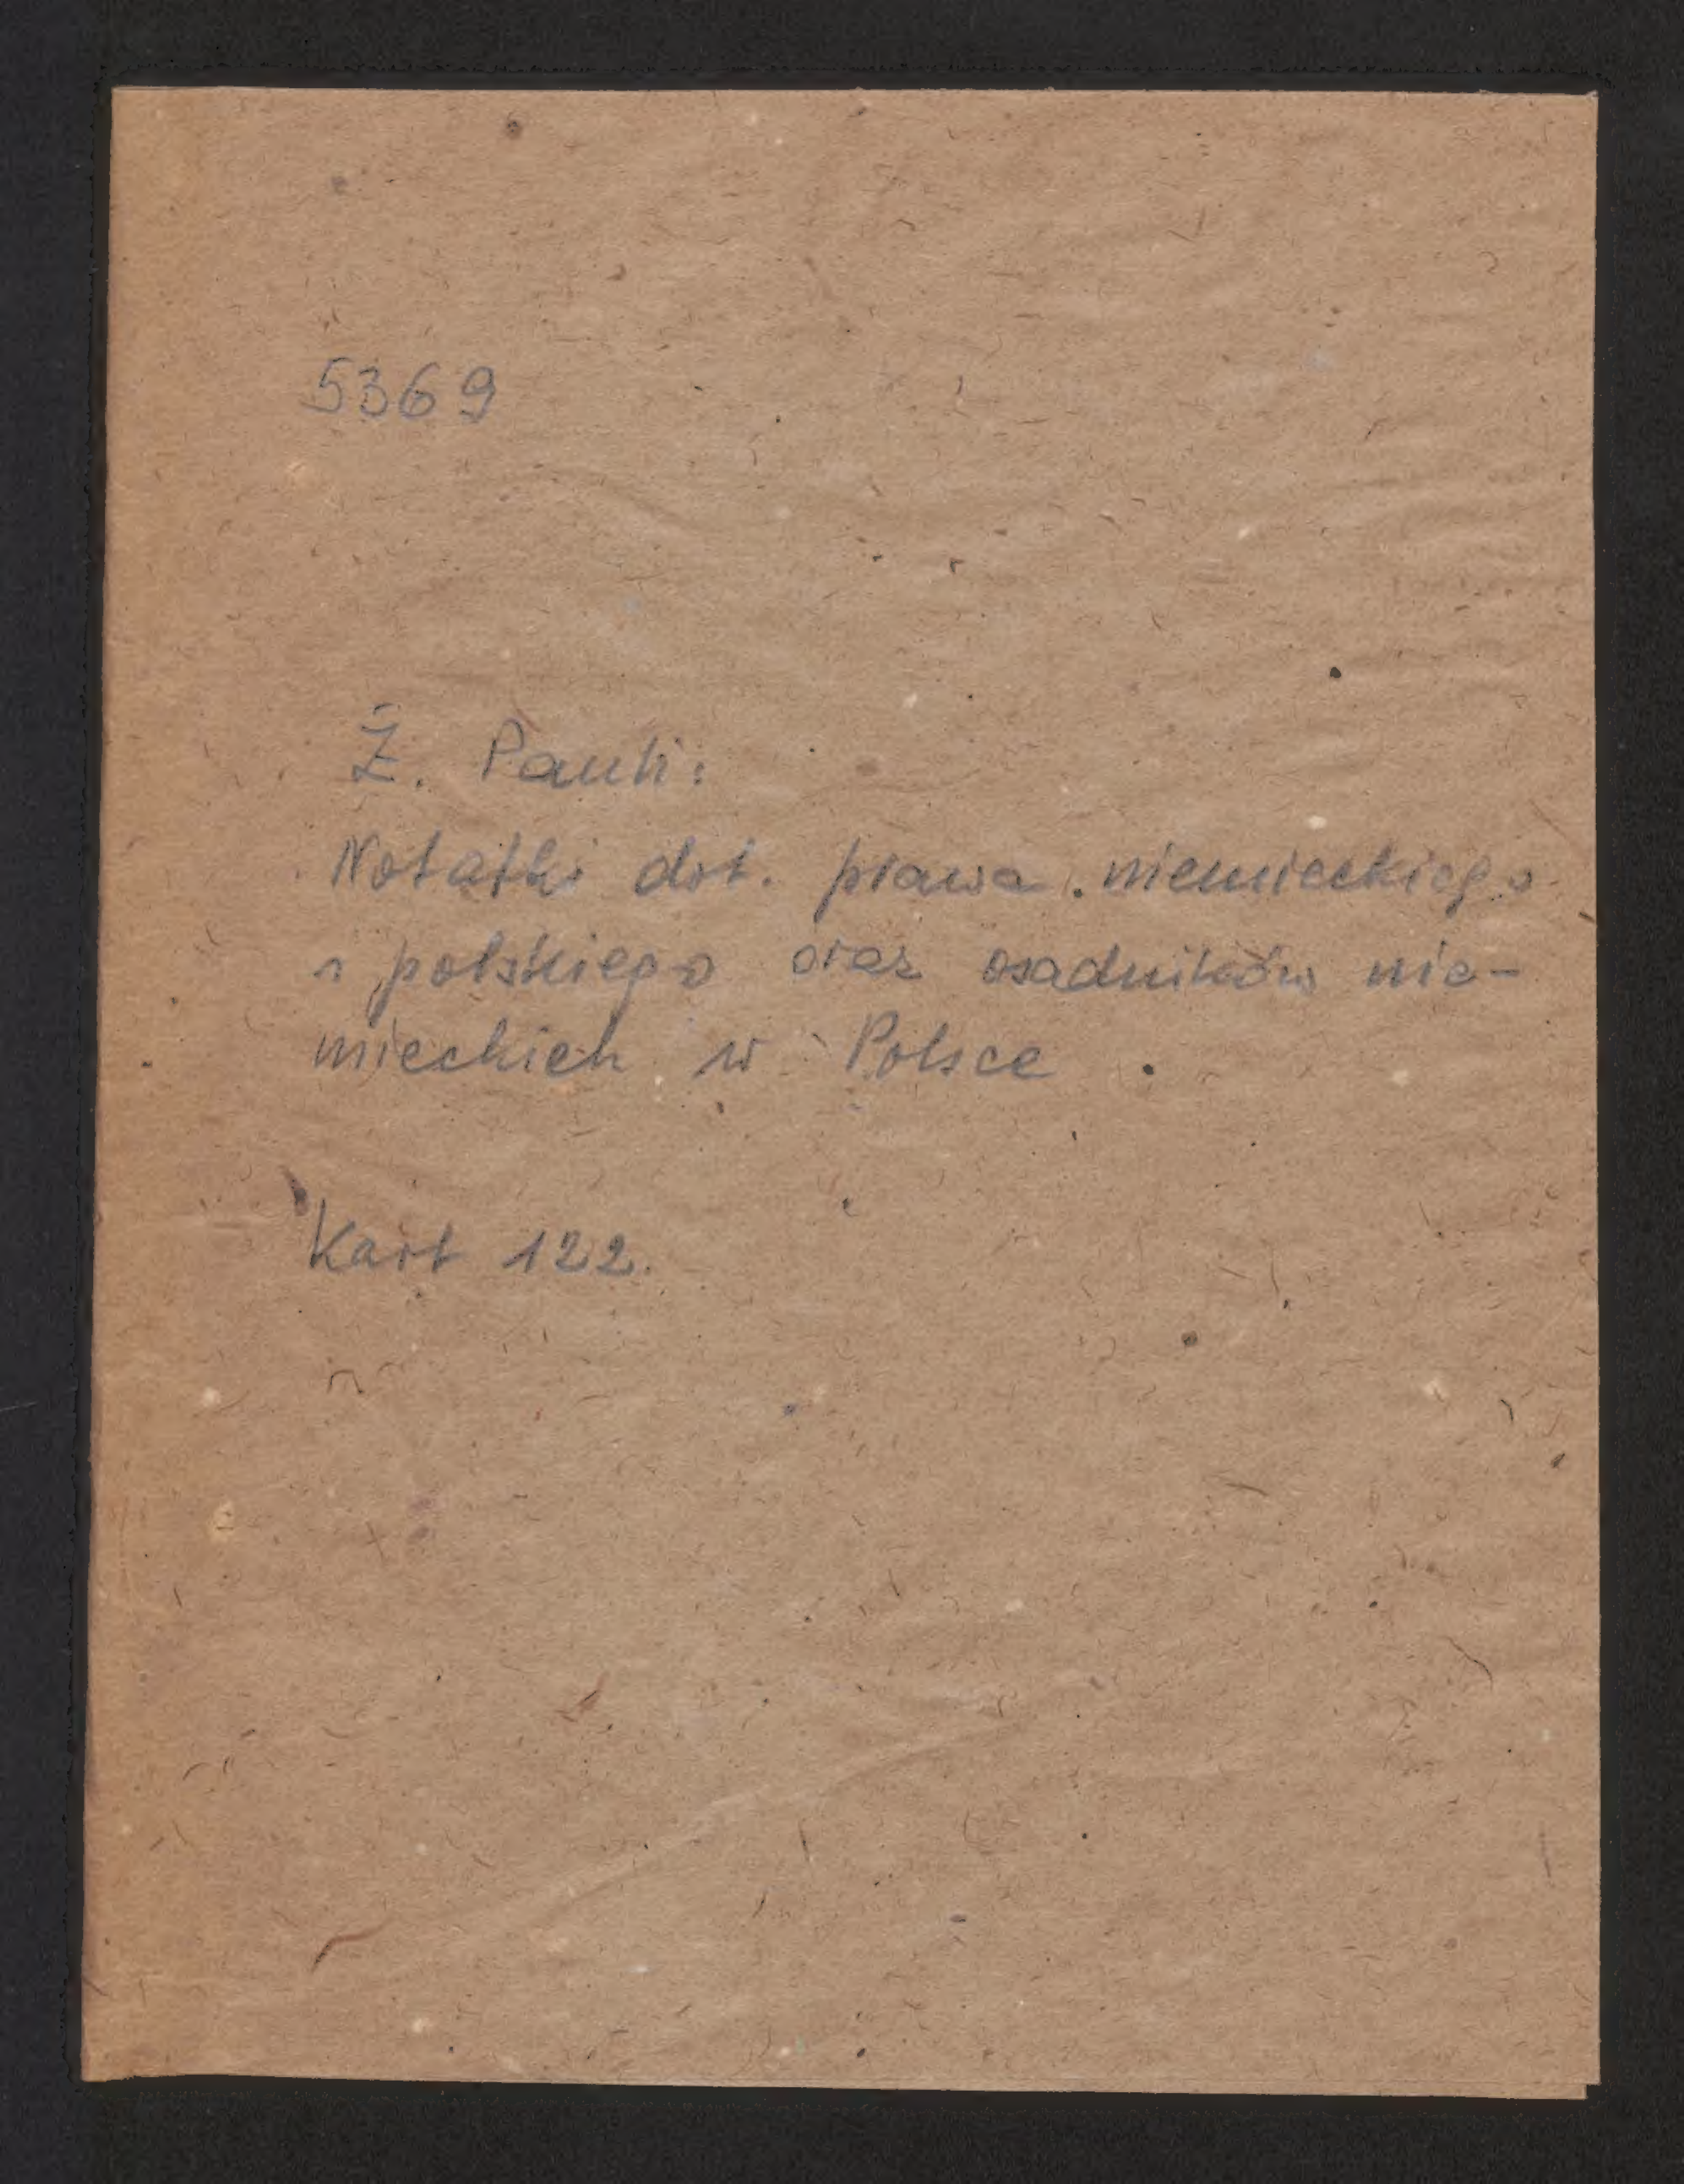 5369
Ż. Pauli:
Notatki dot. prawa niemieckiego
i polskiego oraz osadników nie-
mieckich w Polsce.
Kart 122.